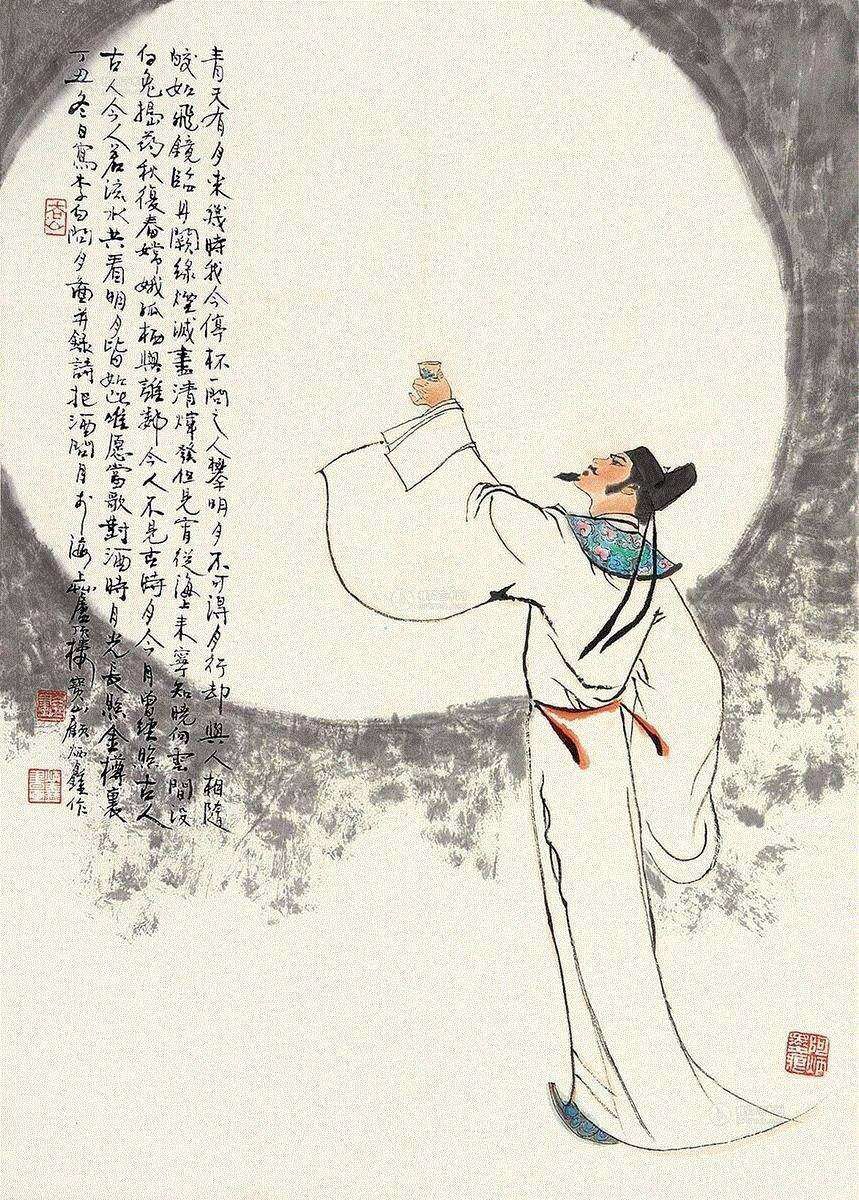 青天有月来幾時我今停杯一問之人攀明月不可得月行却與人相隨
皎如飛鏡臨丹闕緑煙滅盡清輝發但見宵從海上来寧知曉向雲間没
白兔搗药秋復春嫦娥孤栖與誰鄰今人不見古時月今月曾經照古人
古人今人若流水共看明月皆如此唯愿當歌對酒時月光長照金樽裏
丁丑冬日寫李白問月圖并録詩把酒問月於海上樓寶山顧炳鑫作